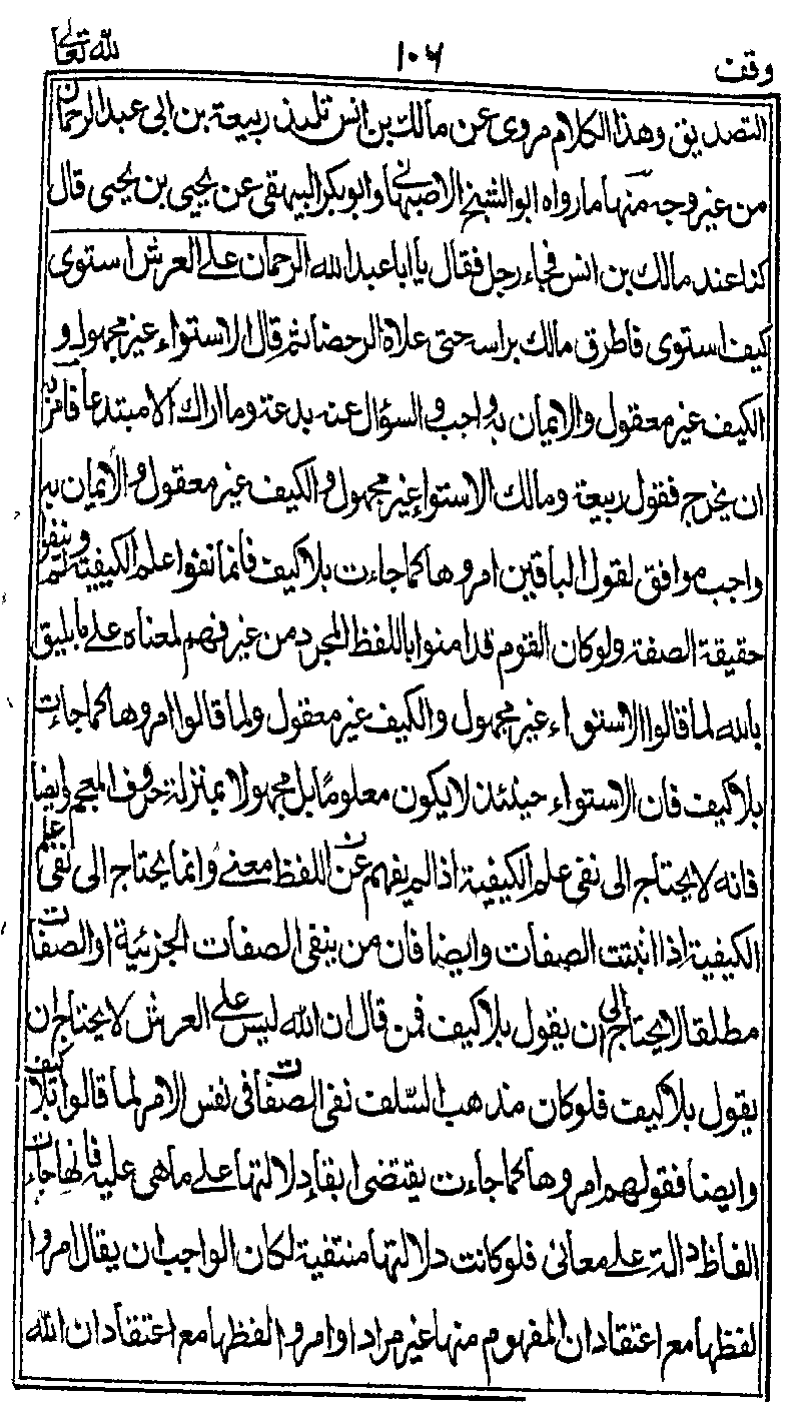 وقف ١٠٦ لله تعالى
التصديق وهذا الكلام مروى عن مالك بن انس تلميذ ربيعة بن ابى عبد الرحمان
من غير وجه منها ما رواه ابو الشيخ الاصبهانى وابو بكر البيهقى عن يحيى بن يحيى قال
كنا عند مالك بن انس فجاء رجل فقال يا ابا عبد الله الرحمان على العرش استوى
كيف استوى فاطرق مالك براسه حتى علاه الرحضا ثم قال الاستواء غير مجهول و
الكيف غير معقول والايمان به واجب والسؤال عنه بدعة وما اراك الا مبتدعا فامر به
ان يخرج فقول ربيعة ومالك الاستواء غير مجهول والكيف غير معقول والايمان به
واجب موافق لقول الباقين امروها كما جاءت بلا كيف فانما نفوا علم الكيفية ولم ينفوا
حقيقة الصفة ولو كان القوم قد امنوا باللفظ المجرد من غير فهم لمعناه على ما يليق
بالله لما قالوا الاستواء غير مجهول والكيف غير معقول ولما قالوا امروها كما جاءت
بلا كيف فان الاستواء حينئذ لا يكون معلوما بل مجهولا بمنزلة حروف المعجم وايضا
فانه لا يحتاج الى نفى علم الكيفية اذا لم يفهم عن اللفظ معنى وانما يحتاج الى نفى علم
الكيفية اذا اثبتت الصفات وايضا فان من ينفى الصفات الجزئية او الصفات
مطلقا لا يحتاج الى ان يقول بلا كيف فمن قال ان الله ليس على العرش لا يحتاج ان
يقول بلا كيف فلو كان مذهب السلف نفى الصفات فى نفس الامر لما قالوا بلا كيف
وايضا فقولهم امروها كما جاءت يقتضى ابقاء دلالتها على ما هى عليه فانها جاءت
الفاظ دالة على معانى فلو كانت دلالتها منتفية لكان الواجب ان يقال امروا
لفظها مع اعتقاد ان المفهوم منها غير مراد او امروا لفظها مع اعتقاد ان الله